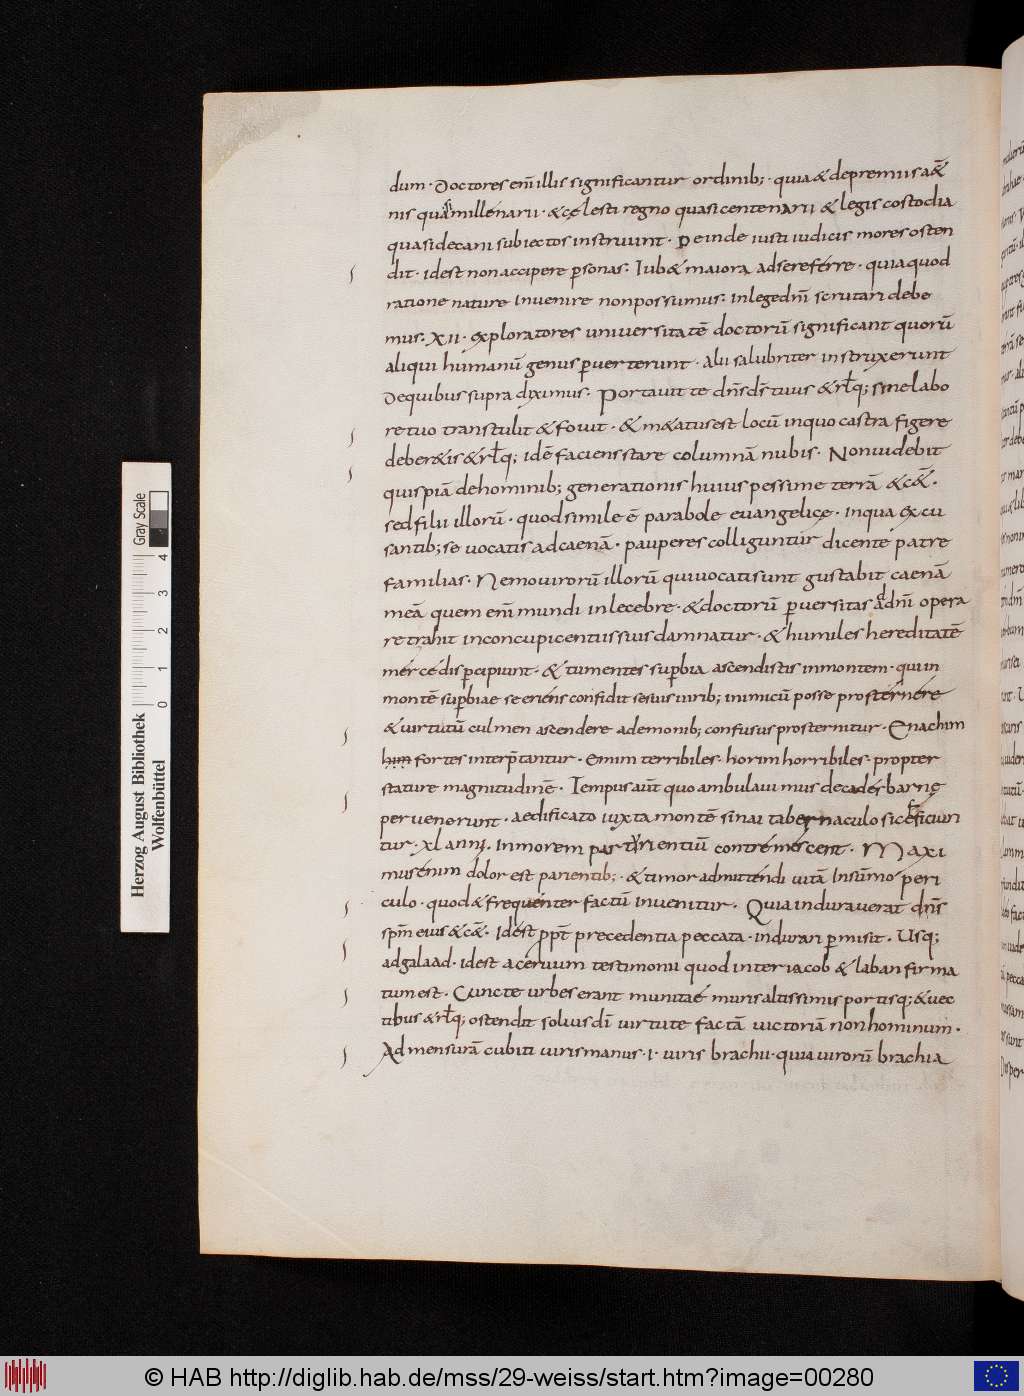 dum · Doctores em̄ illis significantur ordinib; · quia & depremiis aet̄
nis quasi millenarii · & cęlesti regno quasi centenarii & legis custodia
quasi decani subiectos instruunt · Deinde iusti iudicis mores osten
dit · id est non accipere p̱sonas · Iub& maiora ad se referre · quia quod
ratione nature Invenire non possumus : In lege dn̄i scrutari debe
mus : XII · exploratores universitatē doctorū significant quorū
aliqui humanū genus pverterunt · alii salubriter instruxerunt
De quibus supra diximus · Portavit te dn̄s ds̄ tuus & rl̄q; sine labo
re tuo transtulit & fovit · & m&atus est locū in quo castra figere
deber&is & rl̄q; idē faciens stare columnā nubis · Non videbit
quispiā de hominib; generationis huius pessime terrā & c&̄ ·
sed filii illorū · quod simile ē parabole evangelicę · In qua excu
santib; se vocatis ad caenā · pauperes colliguntur dicente patre
familias · Nemo virorū illorū qui vocati sunt gustabit caenā
meā quem em̄ mundi inlecebre · & doctorū pversitas ad dn̄i opera
retrahit in concupicentiis suis damnatur · & humiles hereditatē
mércédis pcipiunt · & tumentes supbia ascendistis in montem · qui in
montē supbiae se eriéns confidit se suis virib; inimicū posse prostérnére
& virtutū culmen ascendere a demonib; confusus prosternitur · Enachim
him fortes interp̄tantur · Emim terribiles · horim horribiles · propter
stature magnitudinē · Tempus aūt quo ambulavimus de cadésbarne
pervenerunt · aedificato iuxta montē sinai tabernaculo sic efficiun
tur · XL anni · In morem parturientiū contrémescent · Maxi
mus énim dolor est parientib; · & timor admittendi vitā In sūmo peri
culo · quod & frequénter factū Invenitur · Quia induraverat dn̄s
spm̄ eius & c&̄ · Idést ppt̄ precedentia peccata · indurari pmisit · Usq;
ad galaad · id est acérvum testimonii quod inter iacob & laban firma
tum est · Cuncte urbes erant munitaé muris altissimis portisq; & vec
tibus & rl̄q; ostendit solius dī virtute factā victoriā non hominum ·
Ad mensurā cubiti viris manus · I · viris brachii · quia virorū brachia
Herzog August Bibliothek
Wolfenbüttel
0 1 2 3 4
Gray Scale
© HAB http://diglib.hab.de/mss/29-weiss/start.htm?image=00280